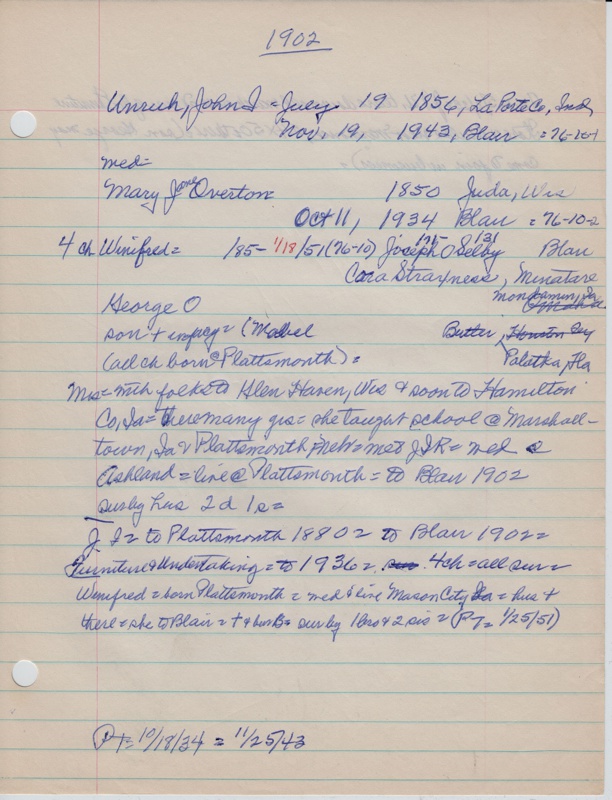 1902
Unruh, John I = July 19 1856, LaPorte Co, Ind
Nov. 19, 1943, Blair = 76-10-1
med=
Mary Jane Overton 1850 Juda, Wis
Oct 11, 1934 Blair = 76-10-2
4 ch Winifred = 185- 1/18/51 (76-10) Joseph O Selby Blair
Cora Straxness, Minatare
George O Mondamin, Ia
son + (Mabel Butler, Houston
(all ch born @ Plattsmouth) = Palatka, Fla
Mrs = with folks to Glen Haven, Wis & soon to Hamilton
Co, Ia = there many yrs = she taught school @ Marshall-
town, Ia & Plattsmouth, Nebr = met J I R = med @
Ashland = live @ Plattsmouth = to Blair 1902
sur by hus 2 d 1 s =
J I = to Plattsmouth 1880 = to Blair 1902 =
Furniture & Undertaking = to 1936 = 4 ch = all sur =
Winifred = born Plattsmouth = med & live Mason City Ia = hus +
there = she to Blair = + & bur B = sur by 1 bro & 2 sis = (PT = 1/25/51)
PT = 10/18/34 = 11/25/43